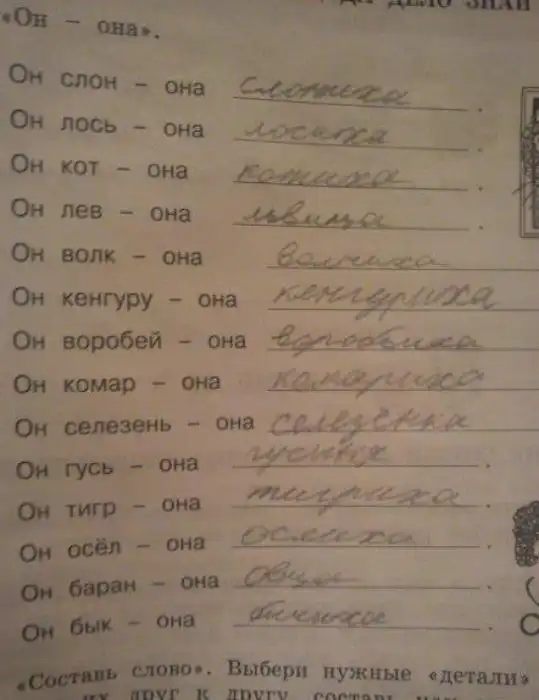 ДЕЛО ЗНАЙ
«Он – она».
Он слон – она слониха.
Он лось – она лосиха.
Он кот – она котиха.
Он лев – она львица.
Он волк – она волчиха
Он кенгуру – она кенгуриха
Он воробей – она воробьиха
Он комар – она комариха
Он селезень – она селезёнка
Он гусь – она гусиха.
Он тигр – она тигриха.
Он осёл – она ослиха.
Он баран – она овца.
Он бык – она бычиха.
«Составь слово». Выбери нужные «детали»
их друг к другу, составь